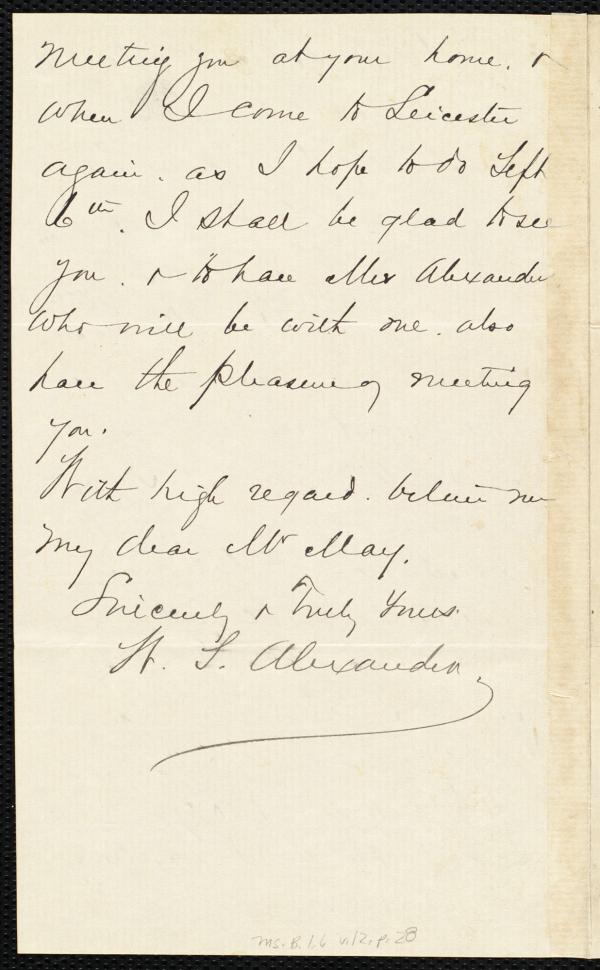 meeting you at your home. &
when I come to Leicester
again. as I hope to do Sept
6th. I shall be glad to see
you. & to have Mrs Alexander
who will be with me. also
have the pleasure of meeting
you.
With high regard. believe me
my dear Mr May.
Sincerely & Truly Yours.
W. S. Alexander.
Ms. B. 1.6 v.12, p. 28